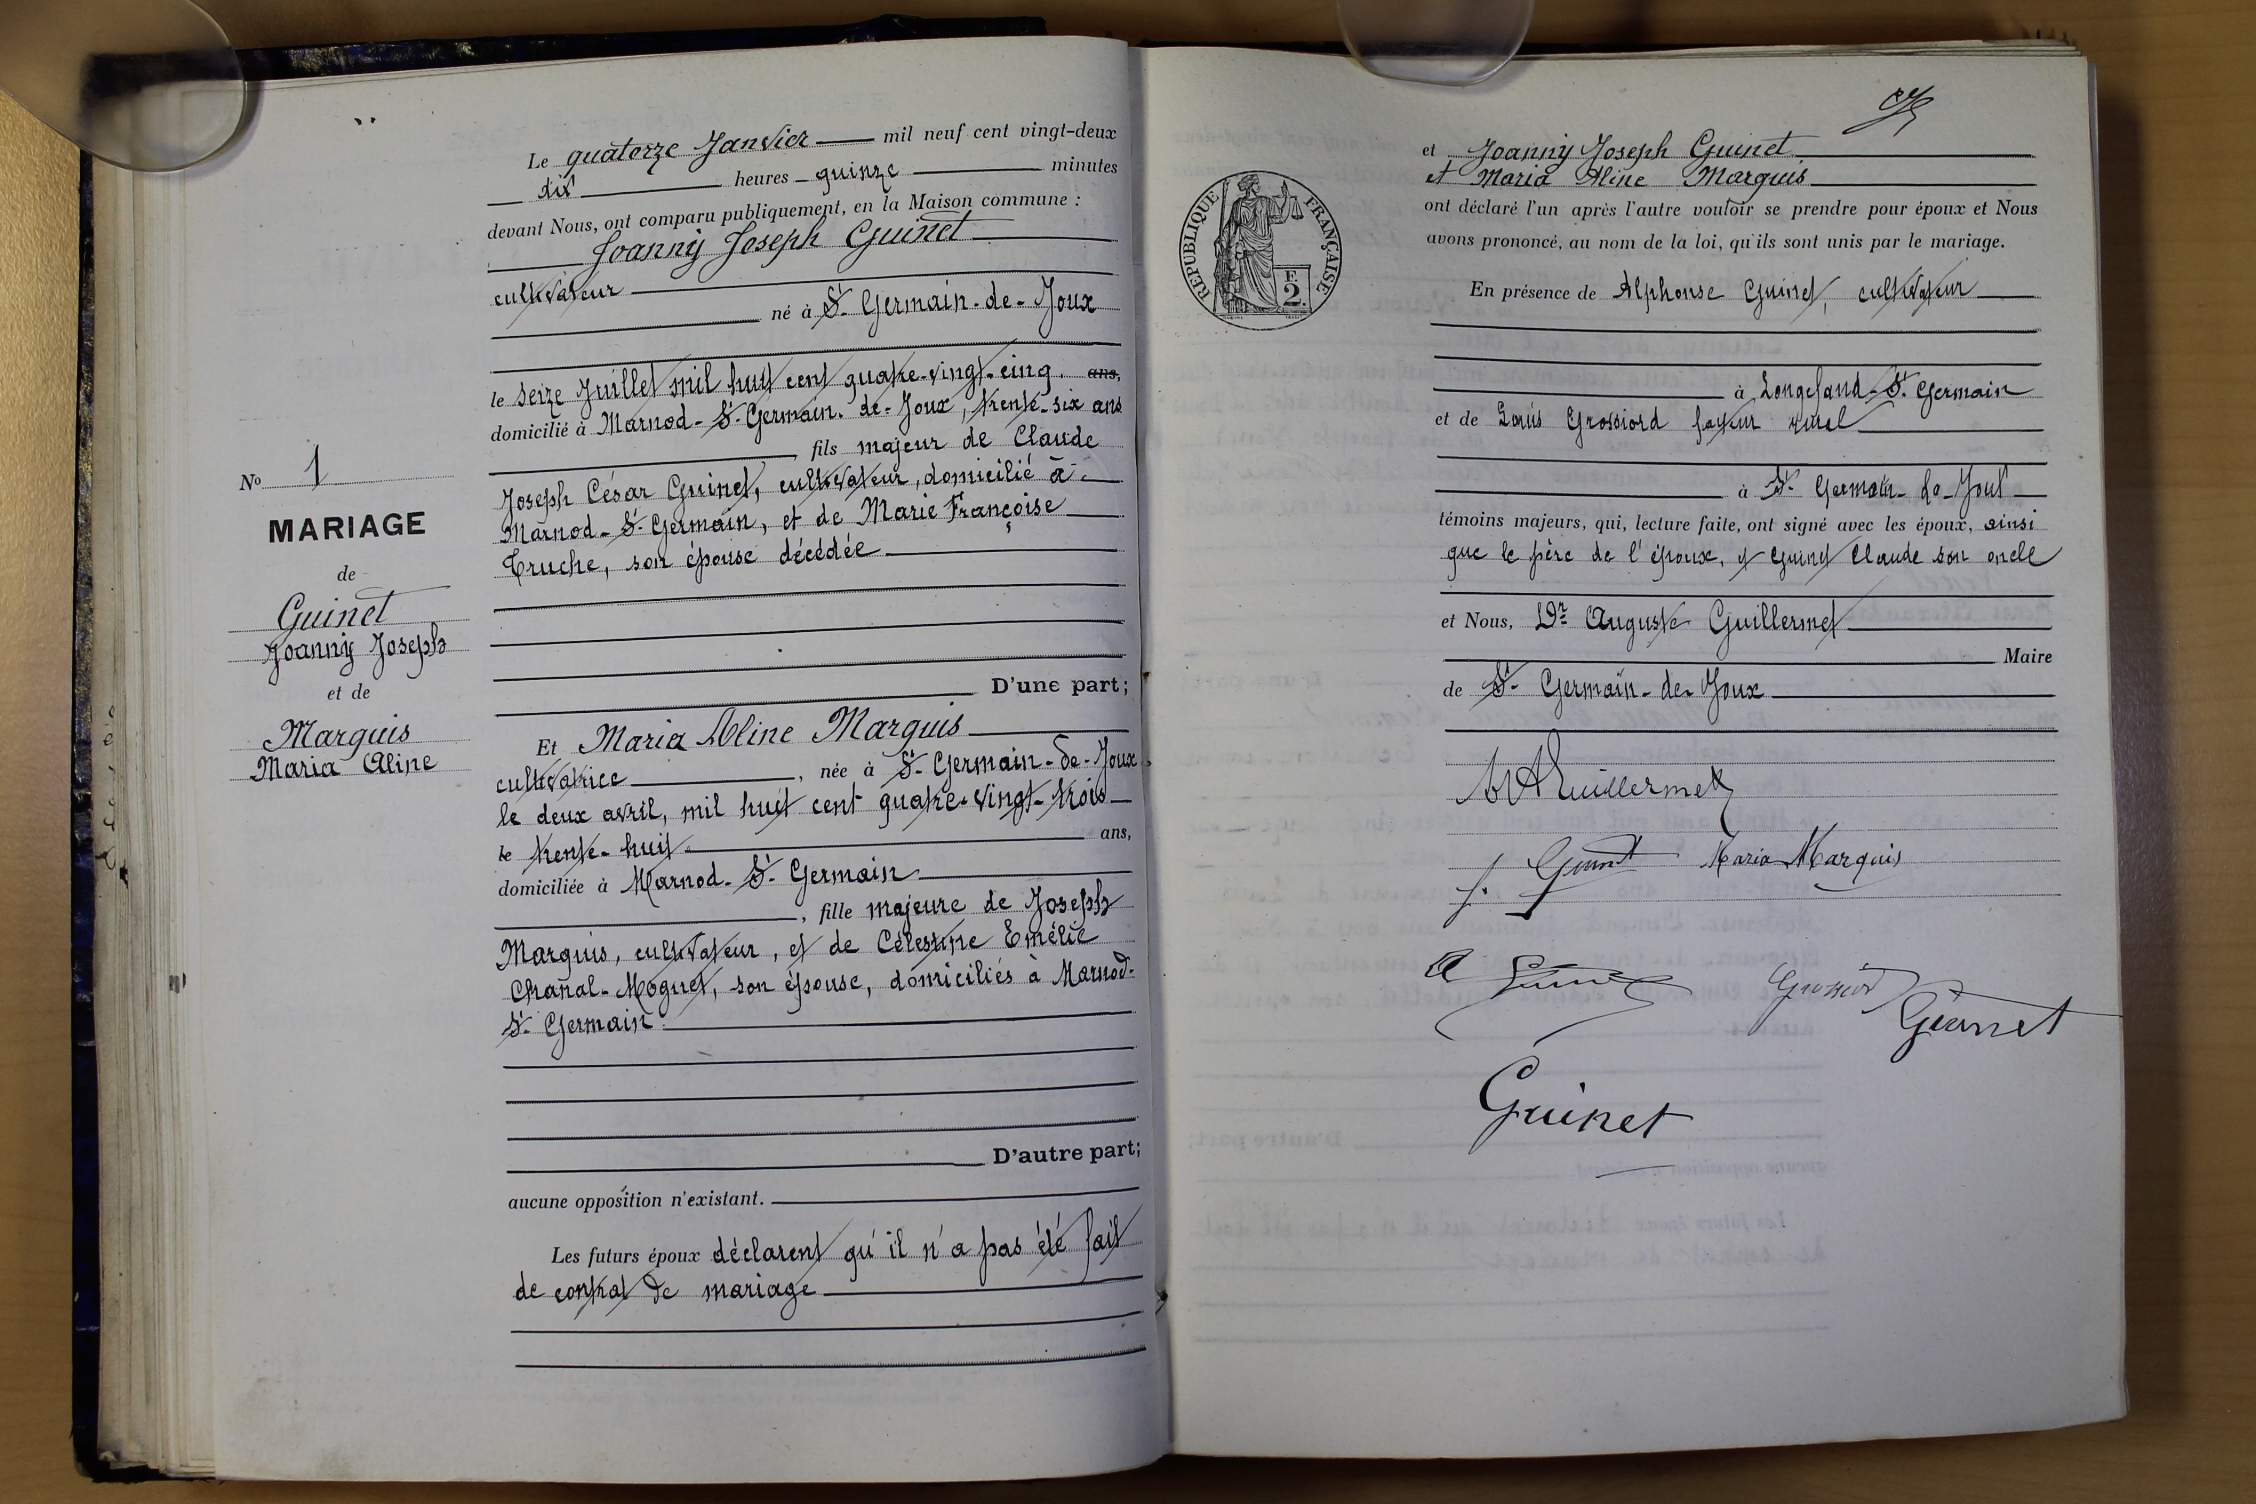 Le quatorze Janvier mil neuf cent vingt-deux
dix heures quinze minutes
devant Nous, ont comparu publiquement, en la Maison commune :
Joanny Joseph Guinet
cultivateur
né à St Germain-de-Joux
le seize Juillet mil huit cent quatre-vingt-cinq. ans,
domicilié à Marnod-St Germain-de-Joux, trente-six ans
fils majeur de Claude
Joseph César Guinet, cultivateur, domicilié à
Marnod-St Germain, et de Marie Françoise
Truche, son épouse décédée
D'une part;
No 1
MARIAGE
de
Guinet
Joanny Joseph
et de
Marquis
Maria Aline
Et Maria Aline Marquis
cultivatrice, née à St Germain-de-Joux
le deux avril, mil huit cent quatre-vingt-trois
le trente-huit ans,
domiciliée à Marnod-St Germain
, fille majeure de Joseph
Marquis, cultivateur, et de Célestine Emélie
Chanal-Moguet, son épouse, domiciliés à Marnod-
St Germain
D'autre part;
aucune opposition n'existant.
Les futurs époux déclarent qu'il n'a pas été fait
de contrat de mariage
et Joanny Joseph Guinet
et Maria Aline Marquis
ont déclaré l'un après l'autre vouloir se prendre pour époux et Nous
avons prononcé, au nom de la loi, qu'ils sont unis par le mariage.
RÉPUBLIQUE FRANÇAISE
F.
2.
En présence de Alphonse Guinet, cultivateur
à Longefand-St Germain
et de Louis Grossiord facteur rural
à St Germain-de-Joux
témoins majeurs, qui, lecture faite, ont signé avec les époux, ainsi
que le père de l'époux, et Guinet Claude son oncle
et Nous, Dr Auguste Guillermet
Maire
de St Germain-de-Joux
Guillermet
J. Guinet Maria Marquis
A Guinet Grossiord
Guinet
Guinet